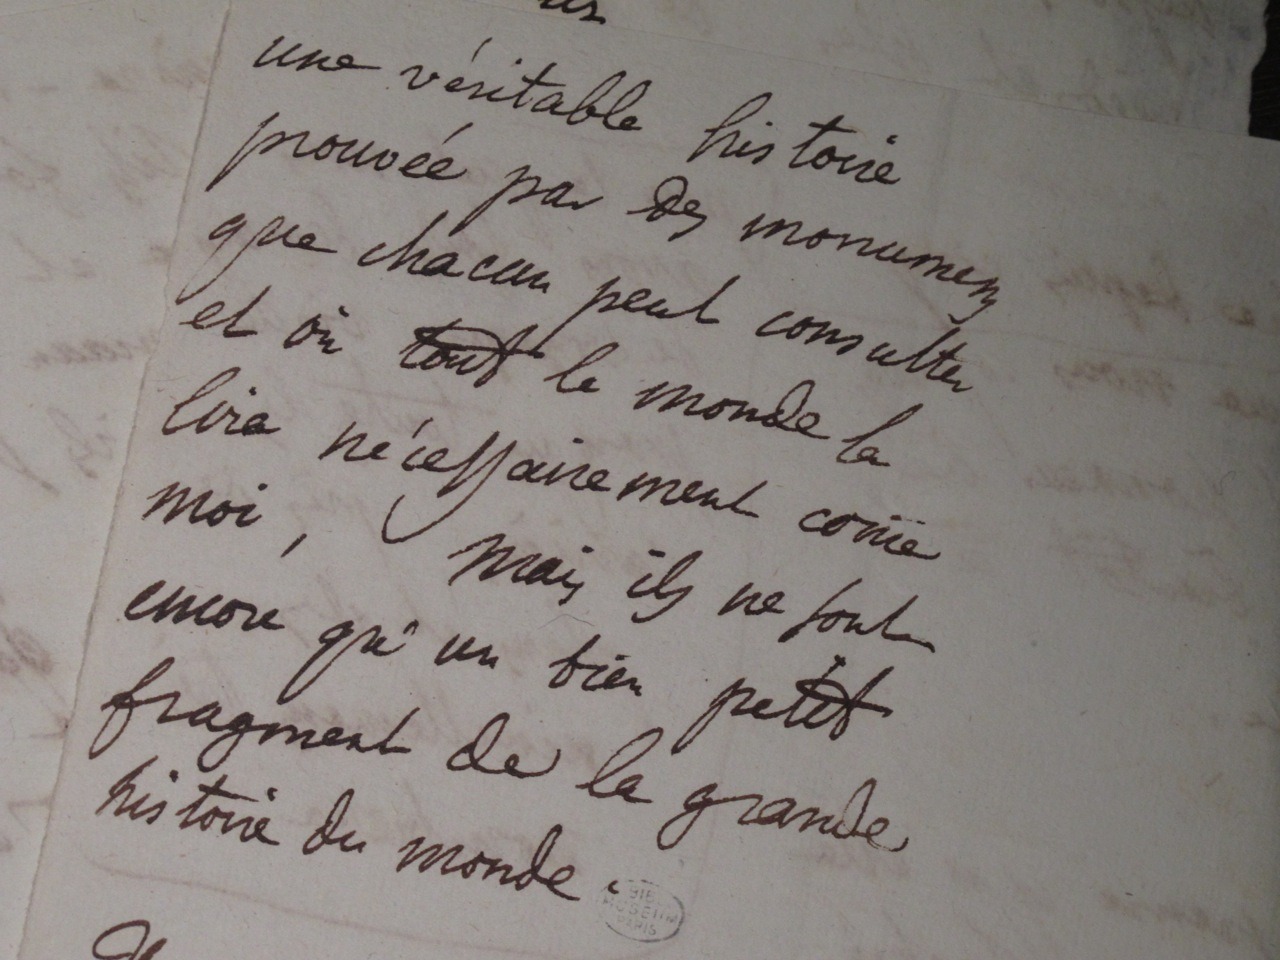 une véritable histoire
prouvée par des monumens
que chacun peut consulter
et où tout le monde la
lira nécessairement come
moi, mais ils ne sont
encore qu'un bien petit
fragment de la grande
histoire du monde.
BIB
MUSEUM
PARIS